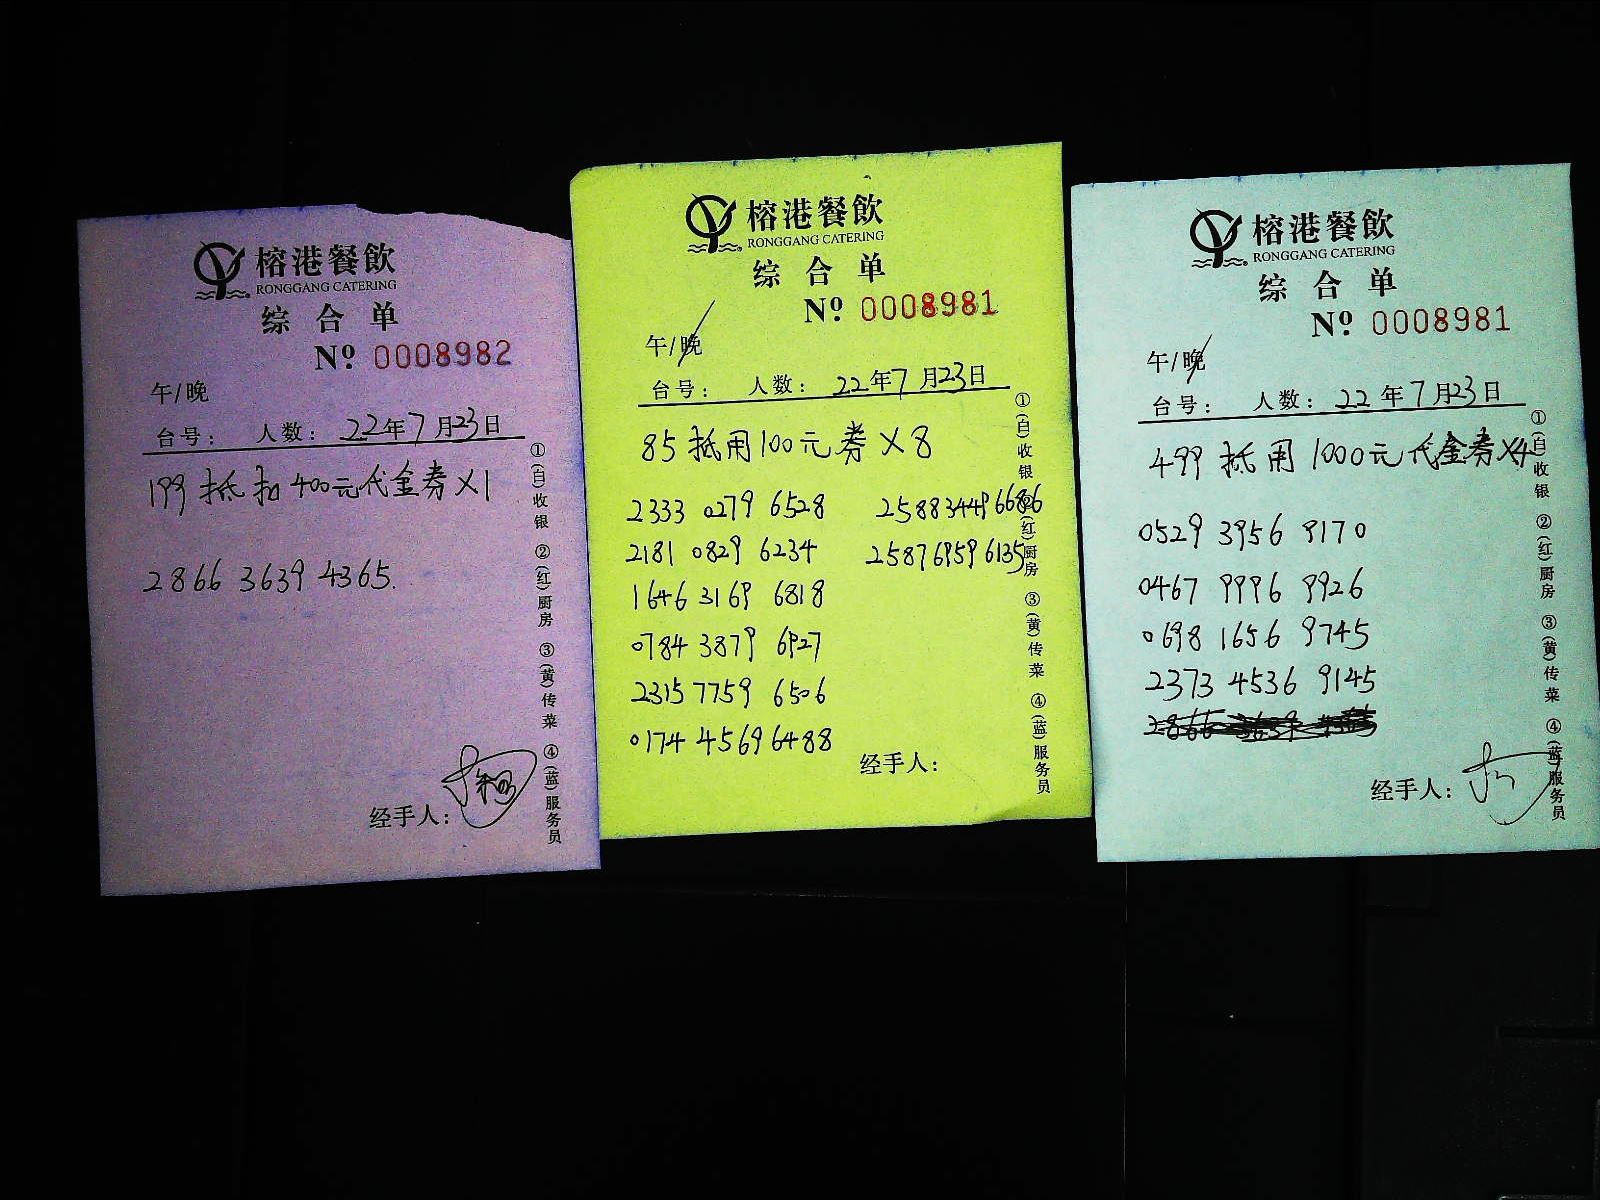 榕港餐飲
RONGGANG CATERING
综合单
Nº 0008982
午/晚
台号： 人数： 22年7月23日
199 抵扣 400元代金券 X1
2866 3639 4365.
经手人：
①(白)收银 ②(红)厨房 ③(黄)传菜 ④(蓝)服务员
榕港餐飲
RONGGANG CATERING
综合单
Nº 0008981
午/晚
台号： 人数： 22年7月23日
85 抵用100元券 X8
2333 0279 6528 2588 3449 6686
2181 0829 6234 2587 6959 6135
1646 3169 6818
0784 3879 6927
2315 7759 6506
0174 4569 6488
经手人：
①(白)收银 ②(红)厨房 ③(黄)传菜 ④(蓝)服务员
榕港餐飲
RONGGANG CATERING
综合单
Nº 0008981
午/晚
台号： 人数： 22年7月23日
499 抵用 1000元代金券X4
0529 3956 9170
0467 9996 9926
0698 1656 9745
2373 4536 9145
经手人：
①(白)收银 ②(红)厨房 ③(黄)传菜 ④(蓝)服务员